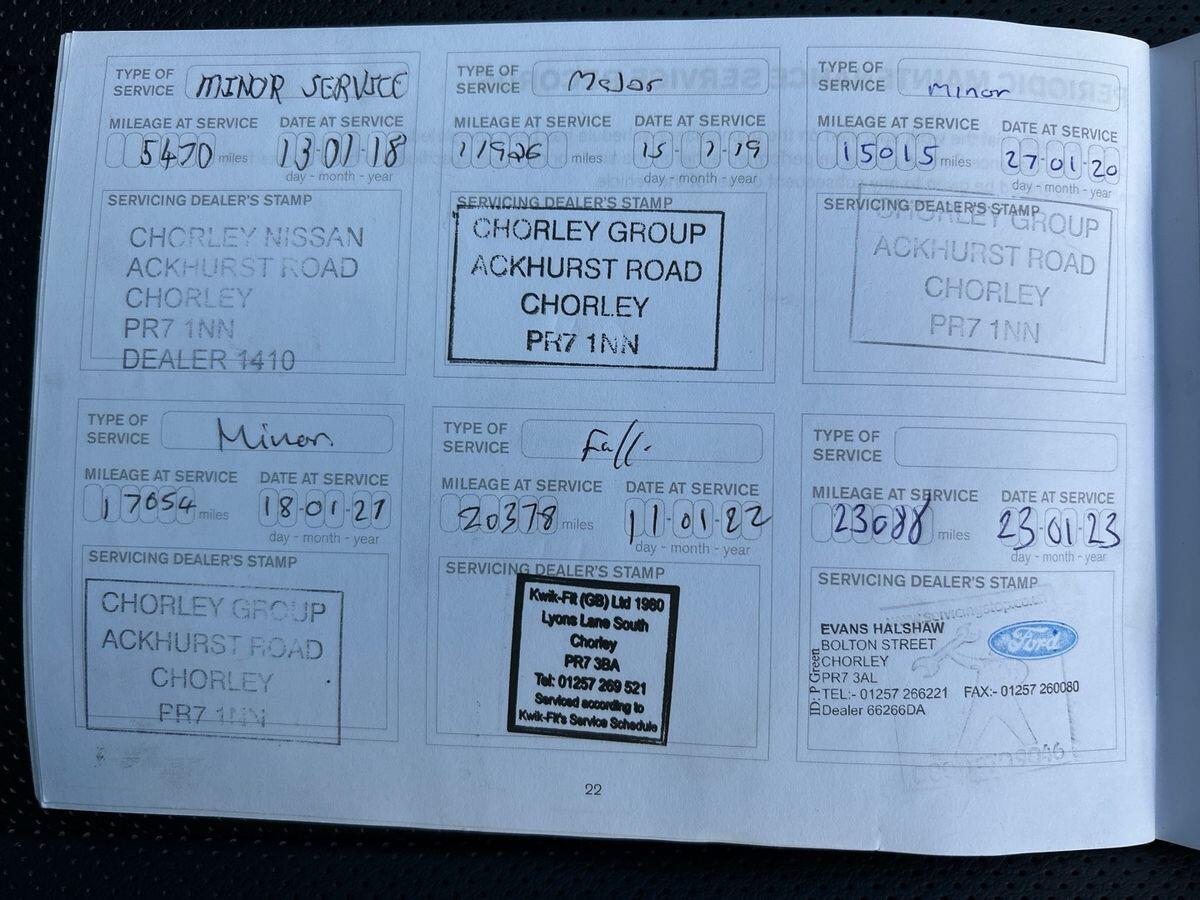 TYPE OF SERVICE MINOR SERVICE
MILEAGE AT SERVICE DATE AT SERVICE
5470 miles 13-01-18
day - month - year
SERVICING DEALER'S STAMP
CHORLEY NISSAN
ACKHURST ROAD
CHORLEY
PR7 1NN
DEALER 1410
TYPE OF SERVICE Major
MILEAGE AT SERVICE DATE AT SERVICE
11926 miles 15-1-19
day - month - year
SERVICING DEALER'S STAMP
CHORLEY GROUP
ACKHURST ROAD
CHORLEY
PR7 1NN
TYPE OF SERVICE Minor
MILEAGE AT SERVICE DATE AT SERVICE
15015 miles 27-01-20
day - month - year
SERVICING DEALER'S STAMP
CHORLEY GROUP
ACKHURST ROAD
CHORLEY
PR7 1NN
TYPE OF SERVICE Minor
MILEAGE AT SERVICE DATE AT SERVICE
17654 miles 18-01-21
day - month - year
SERVICING DEALER'S STAMP
CHORLEY GROUP
ACKHURST ROAD
CHORLEY
PR7 1NN
TYPE OF SERVICE Full
MILEAGE AT SERVICE DATE AT SERVICE
20378 miles 11-01-22
day - month - year
SERVICING DEALER'S STAMP
Kwik-Fit (GB) Ltd 1980
Lyons Lane South
Chorley
PR7 3BA
Tel: 01257 269 521
Serviced according to
Kwik-Fit's Service Schedule
TYPE OF SERVICE
MILEAGE AT SERVICE DATE AT SERVICE
23088 miles 23-01-23
day - month - year
SERVICING DEALER'S STAMP
EVANS HALSHAW
BOLTON STREET
CHORLEY
PR7 3AL
TEL:- 01257 266221 FAX:- 01257 260080
Dealer 66266DA
ID: P Green
Ford
22